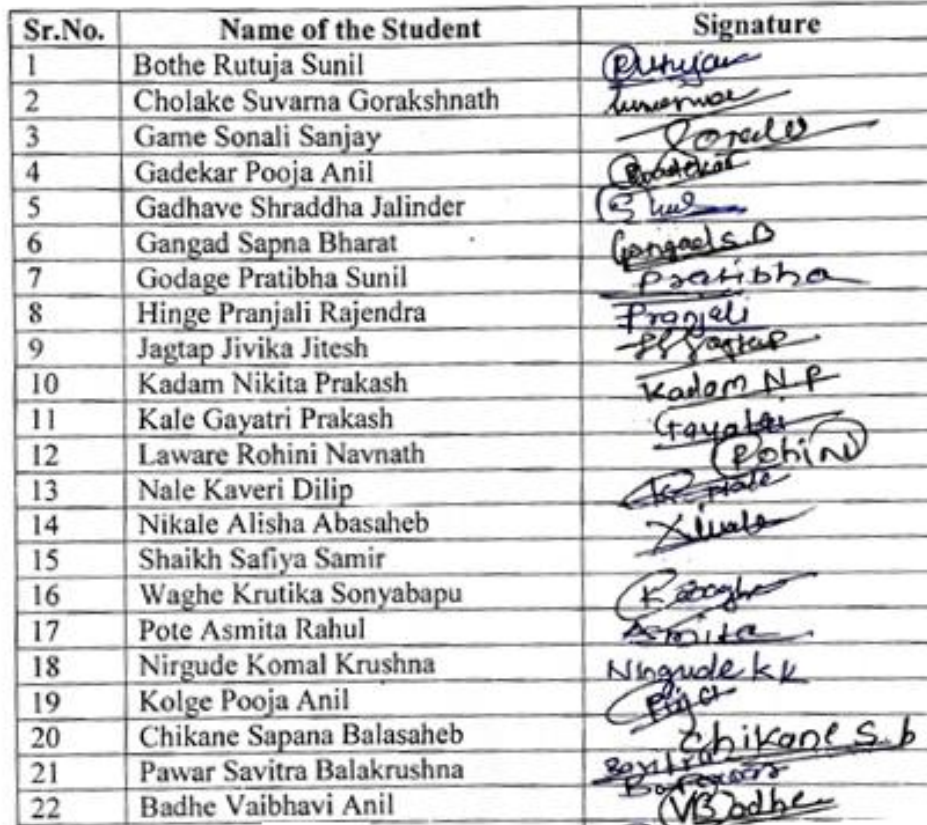 Sr.No. Name of the Student Signature
1 Bothe Rutuja Sunil Rutuja
2 Cholake Suvarna Gorakshnath
3 Game Sonali Sanjay
4 Gadekar Pooja Anil Gadekar
5 Gadhave Shraddha Jalinder
6 Gangad Sapna Bharat Gangad S.B
7 Godage Pratibha Sunil Pratibha
8 Hinge Pranjali Rajendra Pranjali
9 Jagtap Jivika Jitesh Jagtap
10 Kadam Nikita Prakash Kadam N.P
11 Kale Gayatri Prakash Gayatri
12 Laware Rohini Navnath Rohini
13 Nale Kaveri Dilip Nale
14 Nikale Alisha Abasaheb
15 Shaikh Safiya Samir
16 Waghe Krutika Sonyabapu
17 Pote Asmita Rahul Asmita
18 Nirgude Komal Krushna Nirgude KK
19 Kolge Pooja Anil
20 Chikane Sapana Balasaheb Chikane S.b
21 Pawar Savitra Balakrushna
22 Badhe Vaibhavi Anil VBadhe